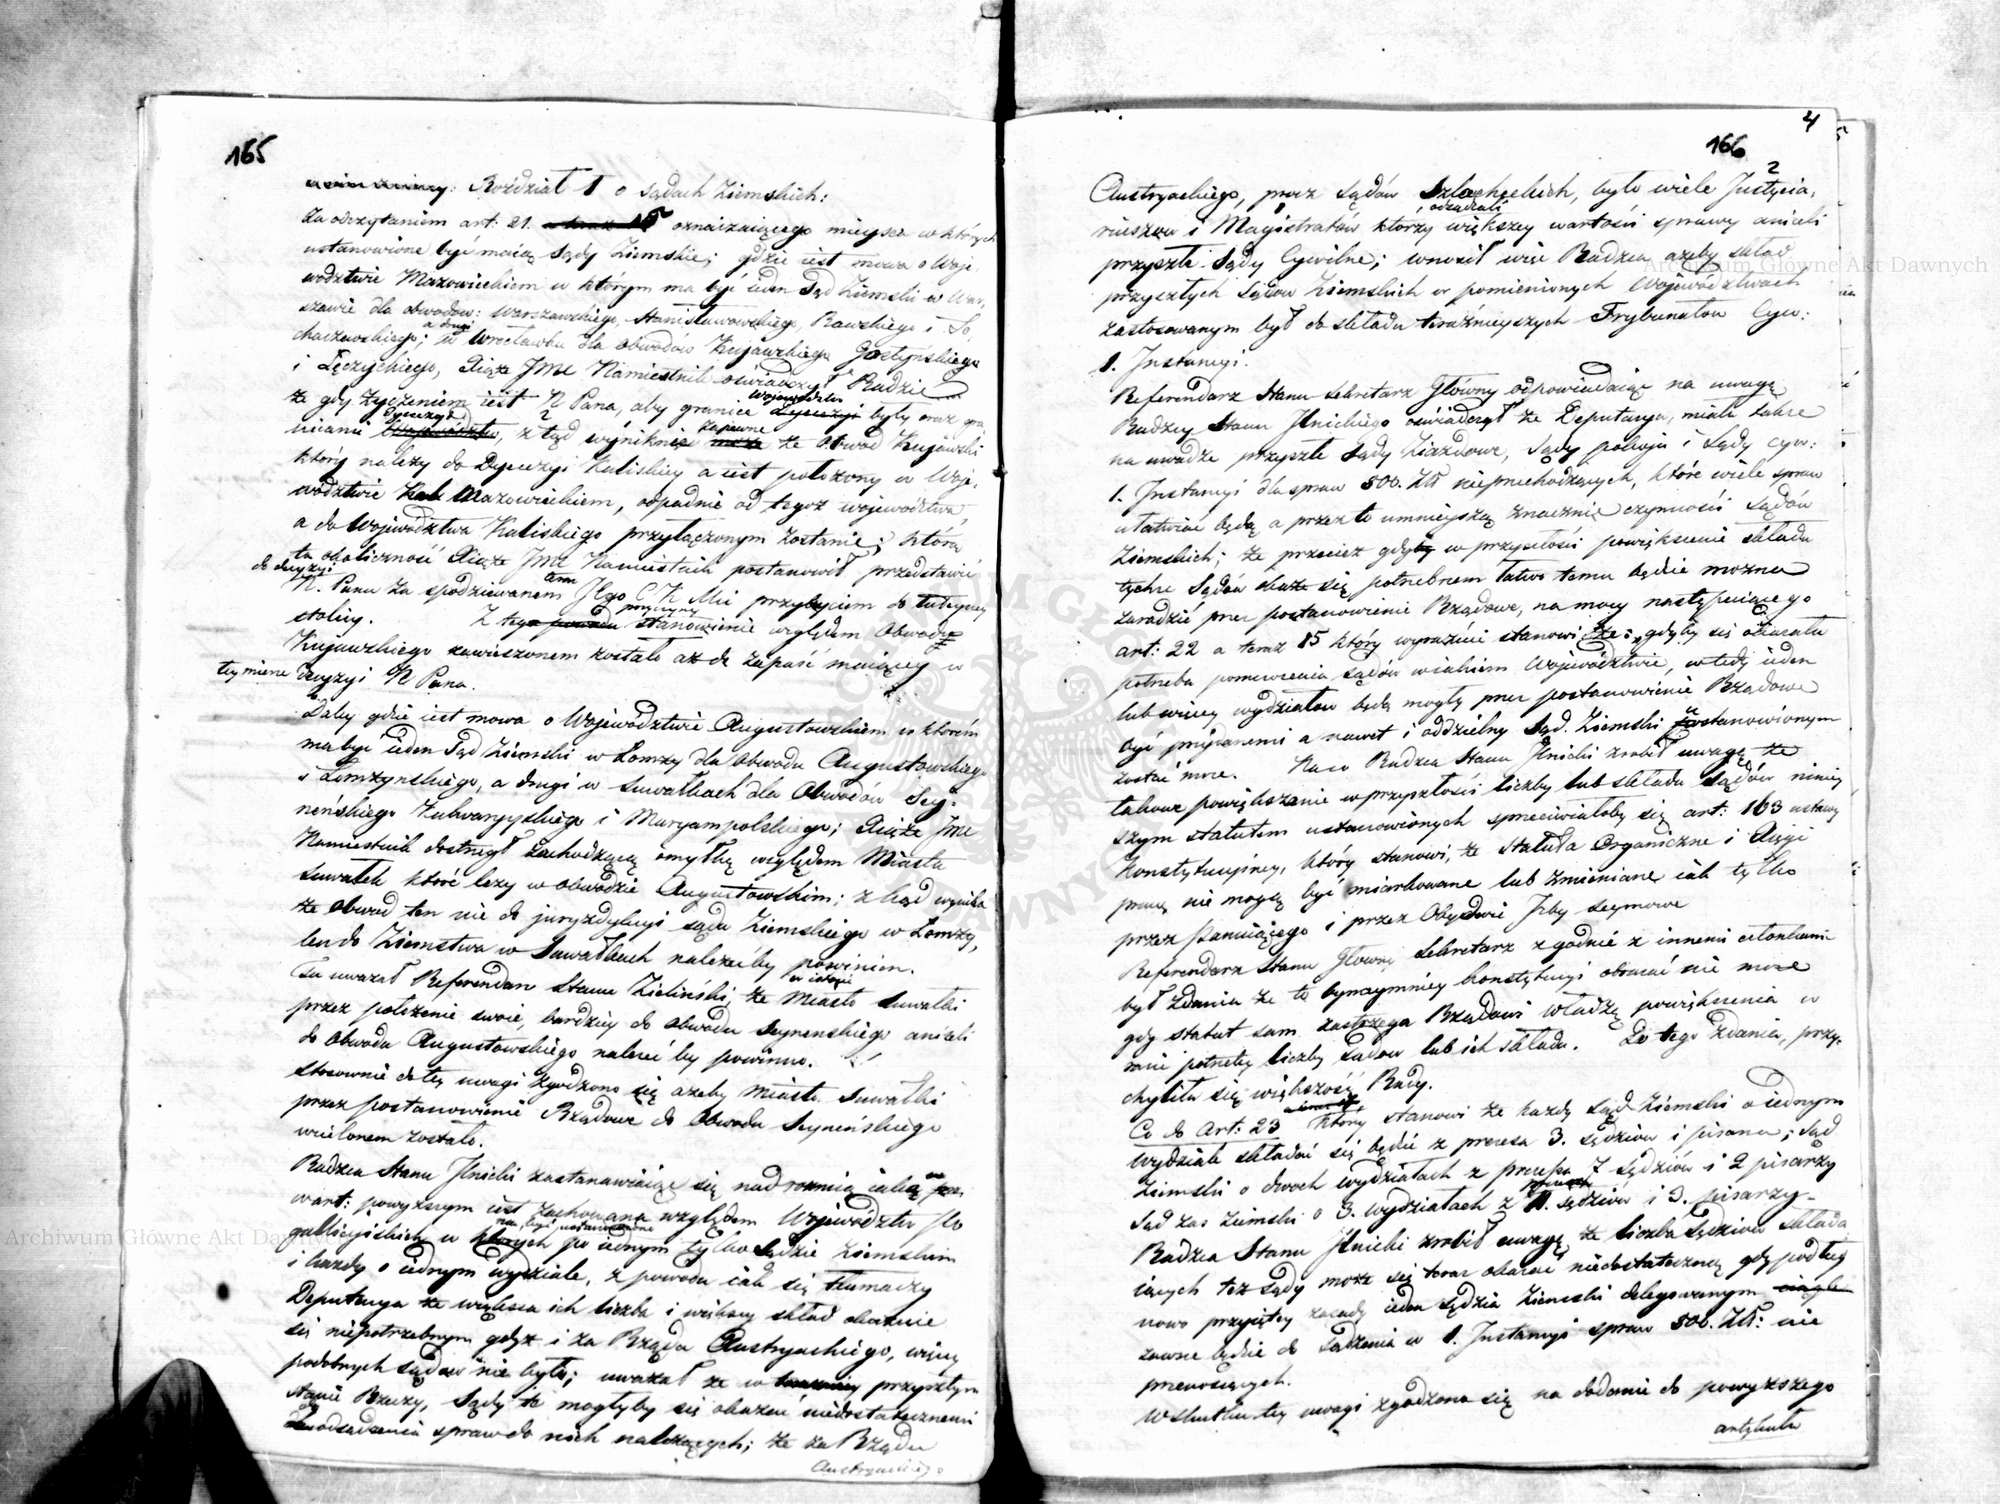 165
Rozdział 1 o sądach Ziemskich:
Za odczytaniem art: 21. oznaczaiącego mieysca w których
ustanowione być maią Sądy Ziemskie; gdzie iest mowa o Woje,
wodztwie Mazowieckiem w którym ma być ieden Sąd Ziemski w War,
szawie dla obwodów: Warszawskiego, Stanisławowskiego, Rawskiego i So,
chaczewskiego; a drugi w Wrocławku dla Obwodów Kujawskiego Gostyńskiego
i Łęczyckiego, Xiąże JMC Namiestnik oświadczył Radzie
że gdy życzeniem iest N Pana, aby granice Województw były oraz gra,
nicami Dyecezyi, z tąd wyniknie zapewne że Obwód Kujawski
który należy do Dyecezyi Kaliskiey a iest położony w Woje,
wództwie Mazowieckiem, odpadnie od tegoż województwa
a do Województwa Kaliskiego przyłączonym zostanie; którą
tę okoliczność Xiąże JMC Namiestnik postanowił przedstawić
do decyzyi N. Panu za spodziewanem Jego C K Mci przybyciem do tuteyszey
stolicy. Z tey przyczyny stanowienie względem Obwodu
Kujawskiego zawieszonem zostało aż do zapaść maiącey w
tey mierze decyzyi N Pana.
Daley gdzie iest mowa o Województwie Augustowskiem w którem
ma być ieden Sąd Ziemski w Łomży dla Obwodu Augustowskiego
i Łomżyńskiego, a drugi w Suwałkach dla Obwodów Sey,
neńskiego Kalwaryyskiego i Maryampolskiego; Xiąże JMC
Namiestnik dostrzegł zachodzącą omyłkę względem Miasta
Suwałek które leży w obwodzie Augustowskim; z kąd wynika
że Obwód ten nie do juryzdykcyi sądu Ziemskiego w Łomży,
lecz do Ziemstwa w Suwałkach należeć by powinien.
Tu uważał Referendarz Stanu Zieliński, że w istocie Miasto Suwałki
przez położenie swoie, bardziey do obwodu Seynenskiego anieli
do Obwodu Augustowskiego należeć by powinno.
Stosownie do tey uwagi zgodzono się ażeby Miasto Suwałki
przez postanowienie Rządowe do Obwodu Seyneńskiego
wcielonem zostało.
Radzca Stanu Ilnicki zastanawiaiąc się nad roznicą iaką
w art: powyższym iest zachowana względem Województw po
gallicyiskich w których po iednym tylko Sądzie Ziemskim
na być ustanowione
i każdy o iednym wydziale, z powodu iak się tłumaczy
Deputacya że większa ich liczba i większy skład okazuie
się niepotrzebnym gdyż i za Rządu Austryackiego, więcey
podobnych sądów nie było; uważał że w przyszłym
stanie Rzeczy, Sądy te mogłyby się okazać niedostatecznemi
do odsądzenia spraw do nich należących; że za Rządu
Austryackiego
4
166
2
Austryackiego, prócz Sądów Szlacheckich, było wiele Justycia,
riuszów i Magistratów którzy odsądzali większey wartości sprawy anieli
przyszłe Sądy Cywilne; wnosił więc Radzca ażeby skład
przyszłych Sądów Ziemskich w pomienionych Województwach
zastosowanym był do składu teraźnieyszych Trybunałów Cyw:
1. Instancyi.
Referendarz Stanu Sekretarz Główny odpowiadaiąc na uwagę
Radzcy Stanu Ilnickiego oświadczył że Deputacya, miała także
na uwadze przyszłe Sądy Ziazdowe, Sądy pokoju i Sądy cyw:
1. Instancyi dla spraw 500. Złł nieprzechodzących, które wiele spraw
ułatwiać będą a przez to umnieyszą znacznie czynności Sądów
Ziemskich; że przecież gdyby w przyszłości powiększenie składu
tychże Sądów okaże się potrzebnem łatwo temu będzie można
zaradzić przez postanowienie Rządowe, na mocy następuiącego
art: 22 a teraz 85 który wyraźnie stanowi że: gdyby się okazała
potrzeba pomnożenia sądów w iakiem Województwie, w tedy ieden
lub więcey wydziałów będą mogły przez postanowienie Rządowe
być przydanemi a nawet i oddzielny Sąd Ziemski ustanowionym
zostać może. Na co Radzca Stanu Ilnicki zrobił uwagę że
takowe powiększanie w przyszłości liczby lub składu Sądów niniey,
szym statutem ustanowionych sprzeciwiałoby się art: 163 ustawy
Konstytucyiney, który stanowi, że Statuta Organiczne i Xięgi
praw nie mogą być miarkowane lub zmieniane iak tylko
przez Panuiącego i przez Obydwie Izby Seymowe
Referendarz Stanu Główny Sekretarz zgodnie z innemi członkami
był zdania że to bynaymniey konstytucyi obrażać nie może
gdy statut sam zastrzega Rządowi władzę powiększenia w
razie potrzeby liczby Sądów lub ich składu. Do tego zdania, przy,
chyliła się większość Rady.
Co do Art: 23 który stanowi że każdy Sąd Ziemski o iednym
wydziale składać się będzie z prezesa 3. Sędziów i pisarza; Sąd
Ziemski o dwóch wydziałach z prezesa 7 Sędziów i 2 pisarzy
Sąd zas Ziemski o 3. wydziałach z prezesa 11. Sędziów i 3. pisarzy.
Radzca Stanu Ilnicki zrobił uwagę że liczba Sędziów składa
iących też sądy może się teraz okazać niedostateczną gdy podług
nowo przyiętey zasady ieden Sędzia Ziemski delegowanym
zawsze będzie do Sądzenia w 1. Instancyi spraw 500. Złł: nie
przenoszących.
W skutku tey uwagi zgodzono się na dodanie do powyższego
artykułu
Archiwum Główne Akt Dawnych
Archiwum Główne Akt Dawnych